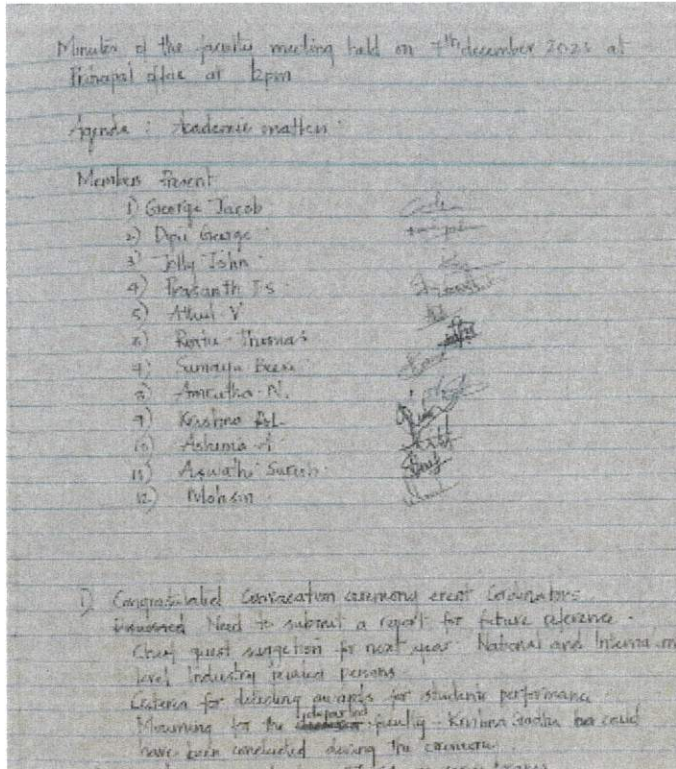 Minutes of the faculty meeting held on 7th december 2023 at
Principal office at 12pm
Agenda : Academic matters
Members Present
1) George Jacob
2) George
3) Jolly John
4) Prasanth
5) Athul V
6) Thomas
7) Sumayya
8) Amrutha N.
9) Krishna
10) Ashima A
11) Aswathi Suresh
12) Mohsin
1) Congratulated Convocation ceremony event Cordinators
Need to submit a report for future reference.
Chief guest suggetion for next year. National and Internation
level Industry related persons
Criteria for deciding awards for students performance
Mourning for the departed faculty - Krishna could
have been conducted during the